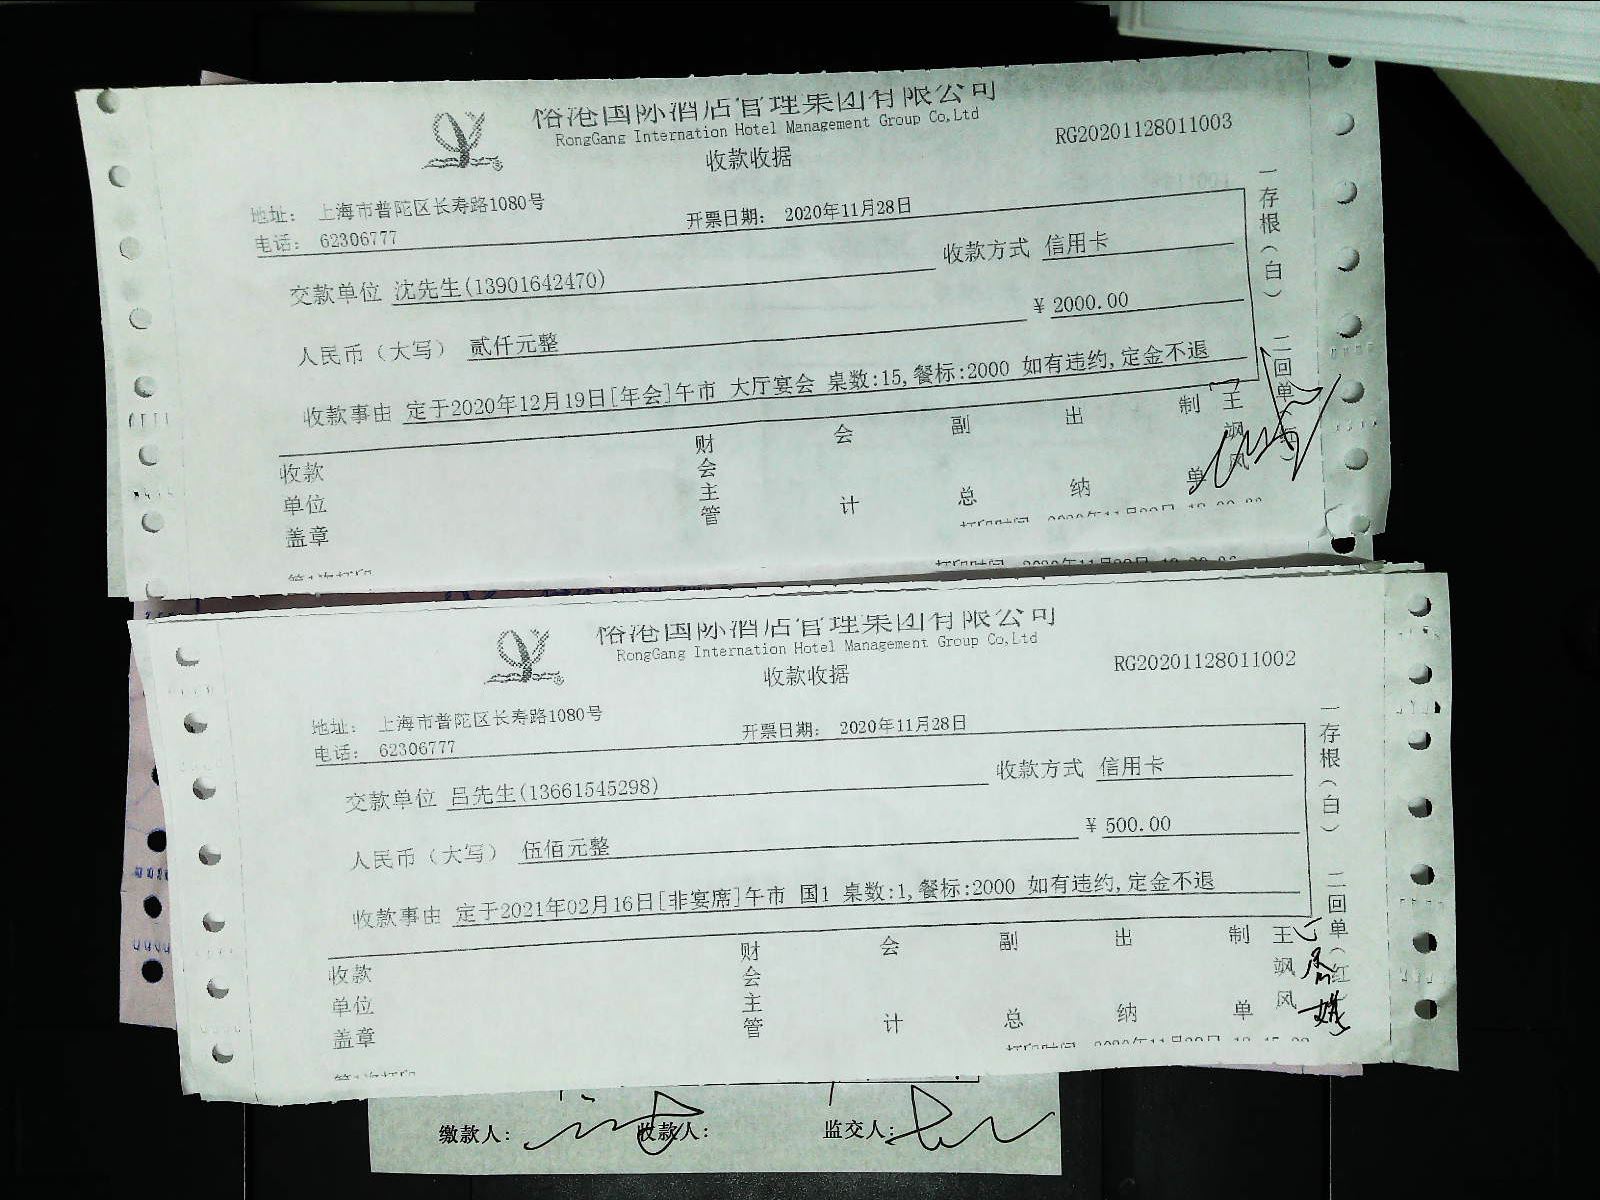 俗港国际酒店管理集团有限公司
RongGang Internation Hotel Management Group Co,Ltd
收款收据
RG20201128011003
地址: 上海市普陀区长寿路1080号
开票日期: 2020年11月28日
电话: 62306777
交款单位 沈先生(13901642470)
收款方式 信用卡
人民币（大写） 贰仟元整
¥ 2000.00
收款事由 定于2020年12月19日[年会]午市 大厅宴会 桌数:15,餐标:2000 如有违约,定金不退
收款单位盖章
财会主管
会计
副总
出纳
制单
王飒风
一存根（白） 二回单（红）
第1次打印
俗港国际酒店管理集团有限公司
RongGang Internation Hotel Management Group Co,Ltd
收款收据
RG20201128011002
地址: 上海市普陀区长寿路1080号
开票日期: 2020年11月28日
电话: 62306777
交款单位 吕先生(13661545298)
收款方式 信用卡
人民币（大写） 伍佰元整
¥ 500.00
收款事由 定于2021年02月16日[非宴席]午市 国1 桌数:1,餐标:2000 如有违约,定金不退
收款单位盖章
财会主管
会计
副总
出纳
制单
王飒风
一存根（白） 二回单（红）
第1次打印
缴款人:
收款人:
监交人: